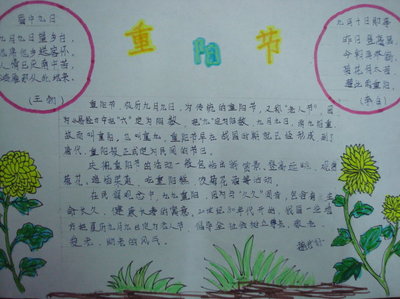 重阳节
蜀中九日
九月九日望乡台
(王勃)
九月十日即事
昨日登高罢
今朝更举觞
菊花何太苦
遭此两重阳
(李白)
重阳节,农历九月九日,为传统的重阳节,又称"老人节"。因
为《易经》中把"六"定为阴数,把"九"定为阳数,九月九日,两九相重,
故而叫重阳,也叫重九。重阳节早在战国时期就已经形成,到了
唐代,重阳被正式定为民间的节日。
庆祝重阳节的活动一般包括出游赏景、登高远眺、观赏
菊花、遍插茱萸、吃重阳糕、饮菊花酒等活动。
在民俗观念中,九九重阳,因为与"久久"同音,包含有生
命长久、健康长寿的寓意。20世纪80年代开始,我国一些地
方把夏历九月九日定为老人节,倡导全社会树立尊老、敬老、
爱老、助老的风气。